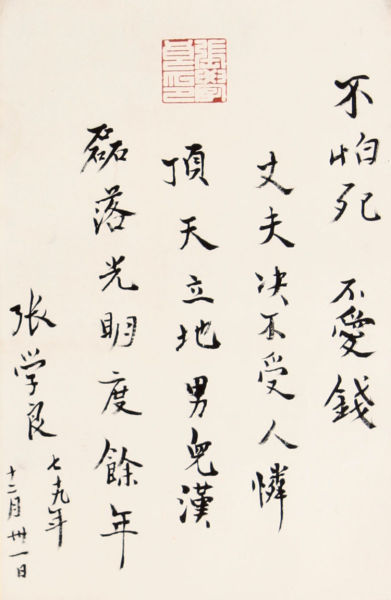 不怕死 不愛錢
丈夫决不受人憐
頂天立地男兒漢
磊落光明度餘年
张学良
七十九年
十二月卅一日
張學良印